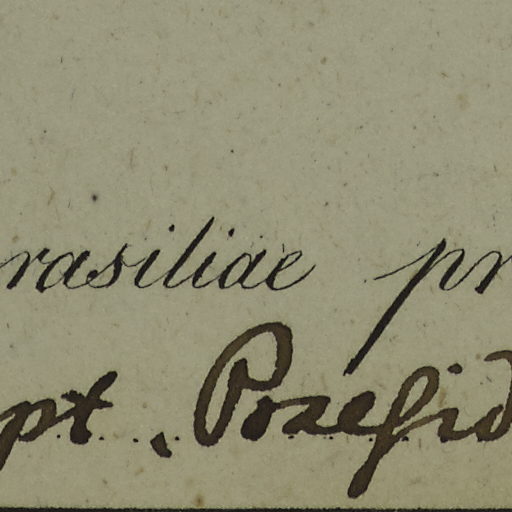 rasiliae pr
pt. Pozesid